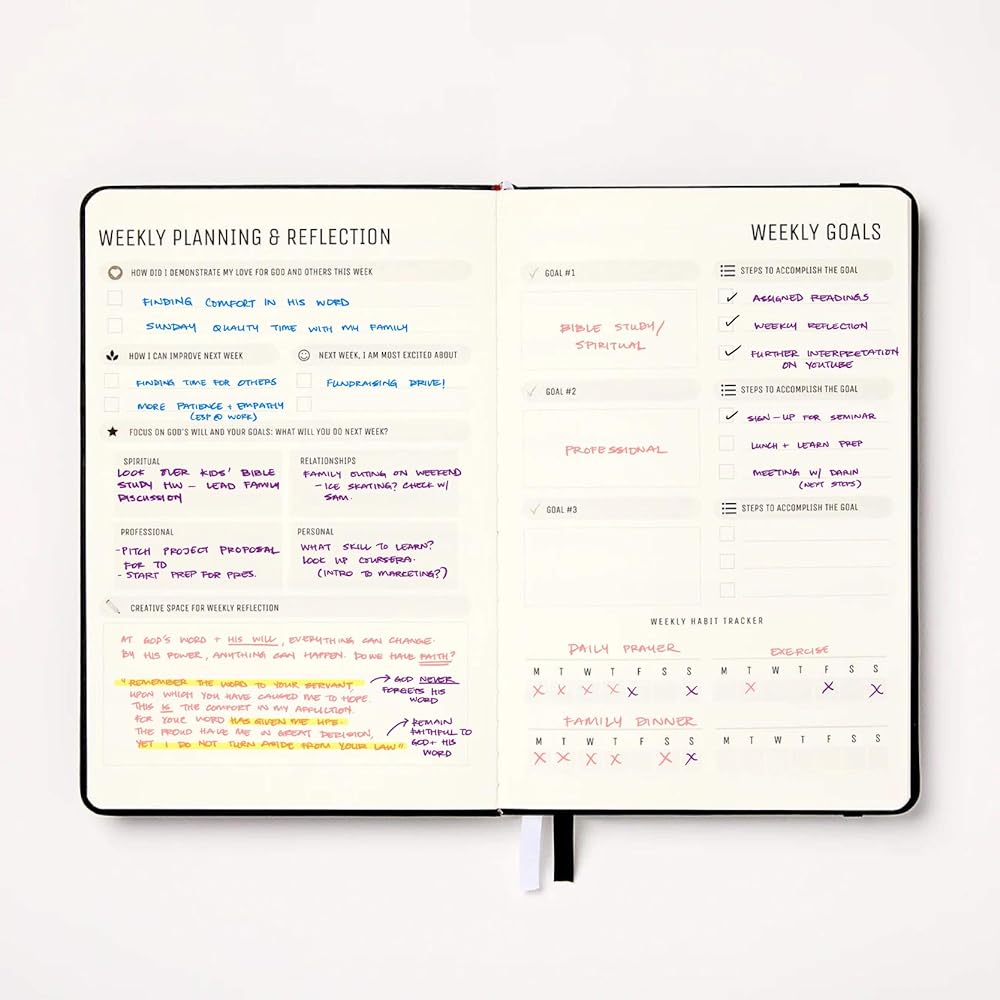 WEEKLY PLANNING & REFLECTION
HOW DID I DEMONSTRATE MY LOVE FOR GOD AND OTHERS THIS WEEK
FINDING COMFORT IN HIS WORD
SUNDAY QUALITY TIME WITH MY FAMILY
HOW I CAN IMPROVE NEXT WEEK
FINDING TIME FOR OTHERS
MORE PATIENCE + EMPATHY
(ESP @ WORK)
NEXT WEEK, I AM MOST EXCITED ABOUT
FUNDRAISING DRIVE!
FOCUS ON GOD'S WILL AND YOUR GOALS: WHAT WILL YOU DO NEXT WEEK?
SPIRITUAL
LOOK OVER KIDS' BIBLE
STUDY HW – LEAD FAMILY
DISCUSSION
RELATIONSHIPS
FAMILY OUTING ON WEEKEND
- ICE SKATING? CHECK W/
SAM.
PROFESSIONAL
-PITCH PROJECT PROPOSAL
FOR TD
- START PREP FOR PRES.
PERSONAL
WHAT SKILL TO LEARN?
LOOK UP COURSERA.
(INTRO TO MARKETING?)
CREATIVE SPACE FOR WEEKLY REFLECTION
AT GOD'S WORD + HIS WILL, EVERYTHING CAN CHANGE.
BY HIS POWER, ANYTHING CAN HAPPEN. DO WE HAVE FAITH?
"REMEMBER THE WORD TO YOUR SERVANT,
UPON WHICH YOU HAVE CAUSED ME TO HOPE.
THIS IS THE COMFORT IN MY AFFLICTION.
FOR YOUR WORD HAS GIVEN ME LIFE.
THE PROUD HAVE ME IN GREAT DERISION,
YET I DO NOT TURN ASIDE FROM YOUR LAW"
GOD NEVER
FORGETS HIS
WORD
REMAIN
FAITHFUL TO
GOD + HIS
WORD
WEEKLY GOALS
GOAL #1
BIBLE STUDY/
SPIRITUAL
STEPS TO ACCOMPLISH THE GOAL
ASSIGNED READINGS
WEEKLY REFLECTION
FURTHER INTERPRETATION
ON YOUTUBE
GOAL #2
PROFESSIONAL
STEPS TO ACCOMPLISH THE GOAL
SIGN-UP FOR SEMINAR
LUNCH + LEARN PREP
MEETING W/ DARIN
(NEXT STEPS)
GOAL #3
STEPS TO ACCOMPLISH THE GOAL
WEEKLY HABIT TRACKER
DAILY PRAYER
M T W T F S S
X X X X X X
EXERCISE
M T W T F S S
X X X
FAMILY DINNER
M T W T F S S
X X X X X X
M T W T F S S